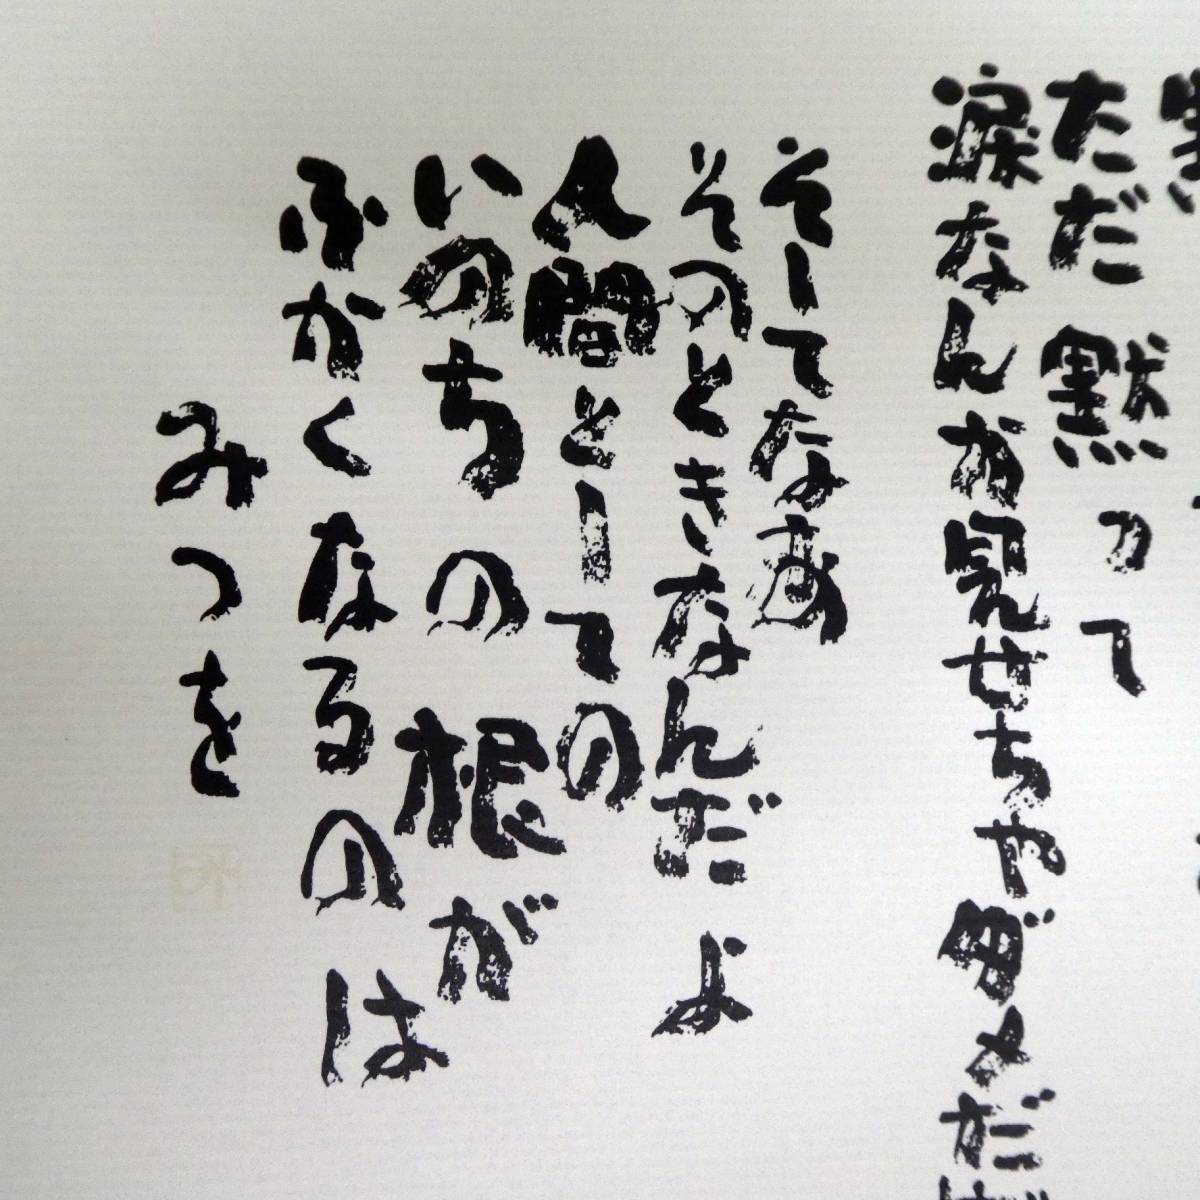 ただ黙って
涙なんか見せちゃダメだ
そしてなあ
そのときなんだよ
人間としての
いのちの根が
ふかくなるのは
みつを